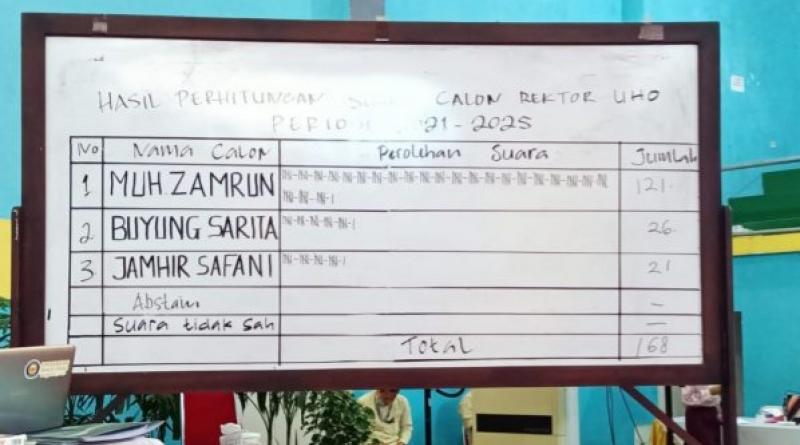 HASIL PERHITUNGAN CALON REKTOR UHO
21-2025
No Nama Calon Perolehan Suara Jumlah
1 MUH ZAMRUN 121
2 BUYUNG SARITA 26
3 JAMHIR SAFANI 21
Abstain –
Suara tidak sah –
Total 168